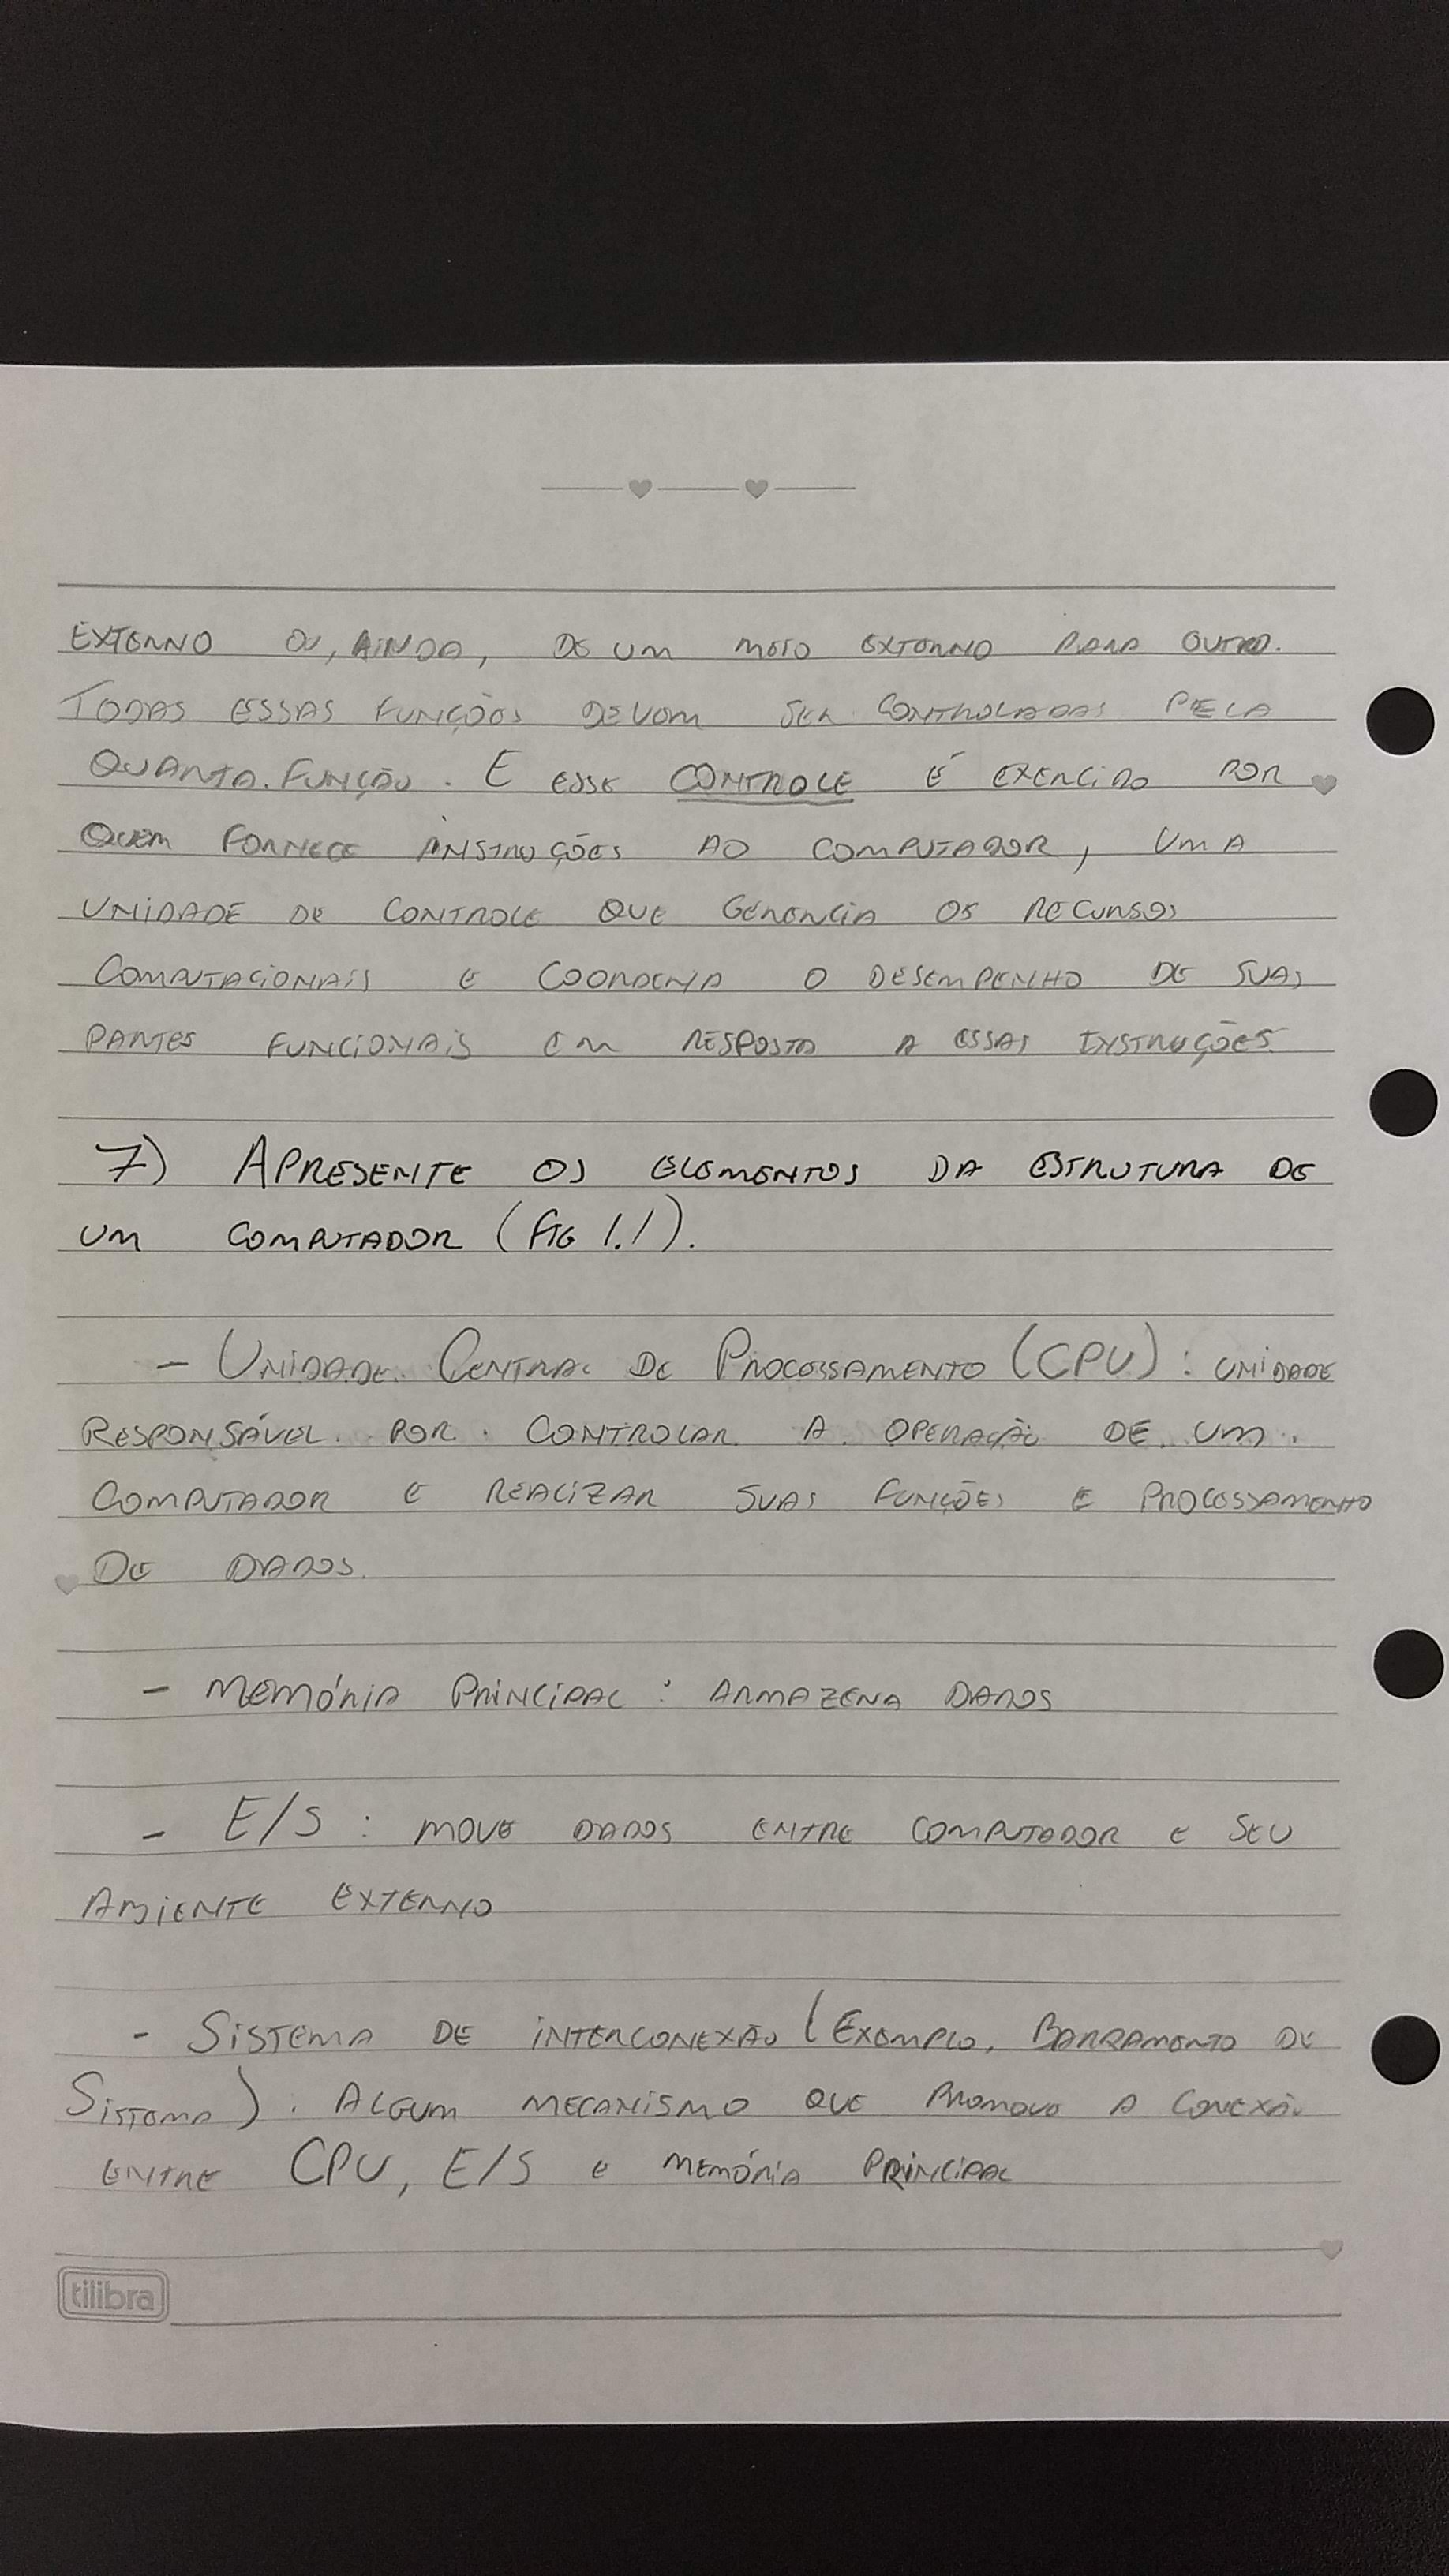 EXTERNO OU, AINDA, DE UM MEIO EXTERNO PARA OUTRO.
TODAS ESSAS FUNÇÕES DEVEM SER CONTROLADAS PELA
QUARTA FUNÇÃO. E ESSE CONTROLE É EXERCIDO POR
QUEM FORNECE INSTRUÇÕES AO COMPUTADOR, UMA
UNIDADE DE CONTROLE QUE GERENCIA OS RECURSOS
COMPUTACIONAIS E COORDENA O DESEMPENHO DE SUAS
PARTES FUNCIONAIS EM RESPOSTA A ESSAS INSTRUÇÕES.
7) APRESENTE OS ELEMENTOS DA ESTRUTURA DE
UM COMPUTADOR (FIG 1.1).
- UNIDADE CENTRAL DE PROCESSAMENTO (CPU): UNIDADE
RESPONSÁVEL POR CONTROLAR A OPERAÇÃO DE UM
COMPUTADOR E REALIZAR SUAS FUNÇÕES E PROCESSAMENTO
DE DADOS.
- MEMÓRIA PRINCIPAL: ARMAZENA DADOS
- E/S: MOVE DADOS ENTRE COMPUTADOR E SEU
AMBIENTE EXTERNO
- SISTEMA DE INTERCONEXÃO (EXEMPLO, BARRAMENTO DE
SISTEMA). ALGUM MECANISMO QUE PROMOVE A CONEXÃO
ENTRE CPU, E/S E MEMÓRIA PRINCIPAL
tilibra